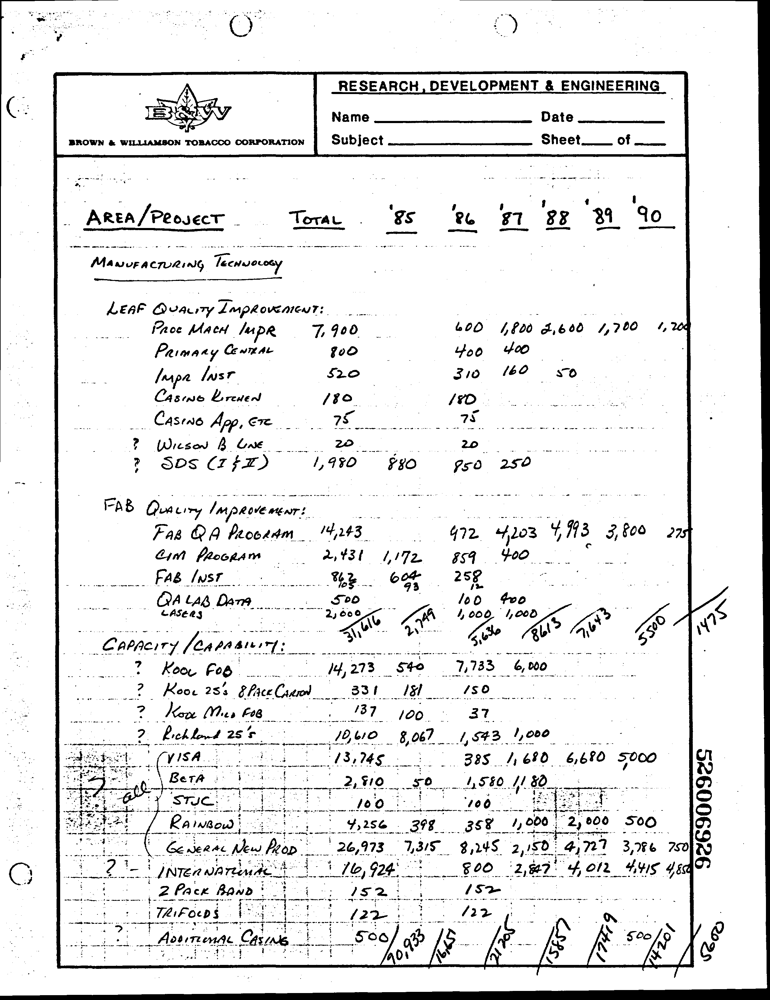 RESEARCH, DEVELOPMENT & ENGINEERING
B&W
Name Date
BROWN & WILLIAMSON TOBACCO CORPORATION
Subject Sheet of
AREA/PROJECT TOTAL '85 '86 '87 '88 '89 '90
MANUFACTURING TECHNOLOGY
LEAF QUALITY IMPROVEMENT:
PROC MACH IMPR 7,900 600 1,800 2,600 1,700 1,200
PRIMARY CENTRAL 800 400 400
IMPR INST 520 310 160 50
CASING KITCHEN 180 180
CASING APP, ETC 75 75
? WILSON B LINE 20 20
? SDS (I & II) 1,980 880 850 250
FAB QUALITY IMPROVEMENT:
FAB QA PROGRAM 14,243 972 4,203 4,993 3,800 275
CIM PROGRAM 2,431 1,172 859 400
FAB INST 862 604 258
105 93 12
QA LAB DATA 500 100 400
LASERS 2,000 1,000 1,000
31,616 2,749 5,636 8613 7,643 5500 1475
CAPACITY/CAPABILITY:
? KOOL FOB 14,273 540 7,733 6,000
? KOOL 25's 8 PACK CARTON 331 181 150
? KOOL MILD FOB 137 100 37
? Richland 25's 10,610 8,067 1,543 1,000
VISA 13,745 385 1,680 6,680 5,000
? all BETA 2,810 50 1,580 1,180
STJC 100 100
RAINBOW 4,256 398 358 1,000 2,000 500
GENERAL NEW PROD 26,973 7,315 8,245 2,150 4,727 3,786 750
? - INTERNATIONAL 16,924 800 2,847 4,012 4,415 4,850
2 PACK BAND 152 152
TRIFOLDS 122 122
? ADDITIONAL CASING 500 500
90,933 16,651 21205 15857 17419 14201 5600
526006926